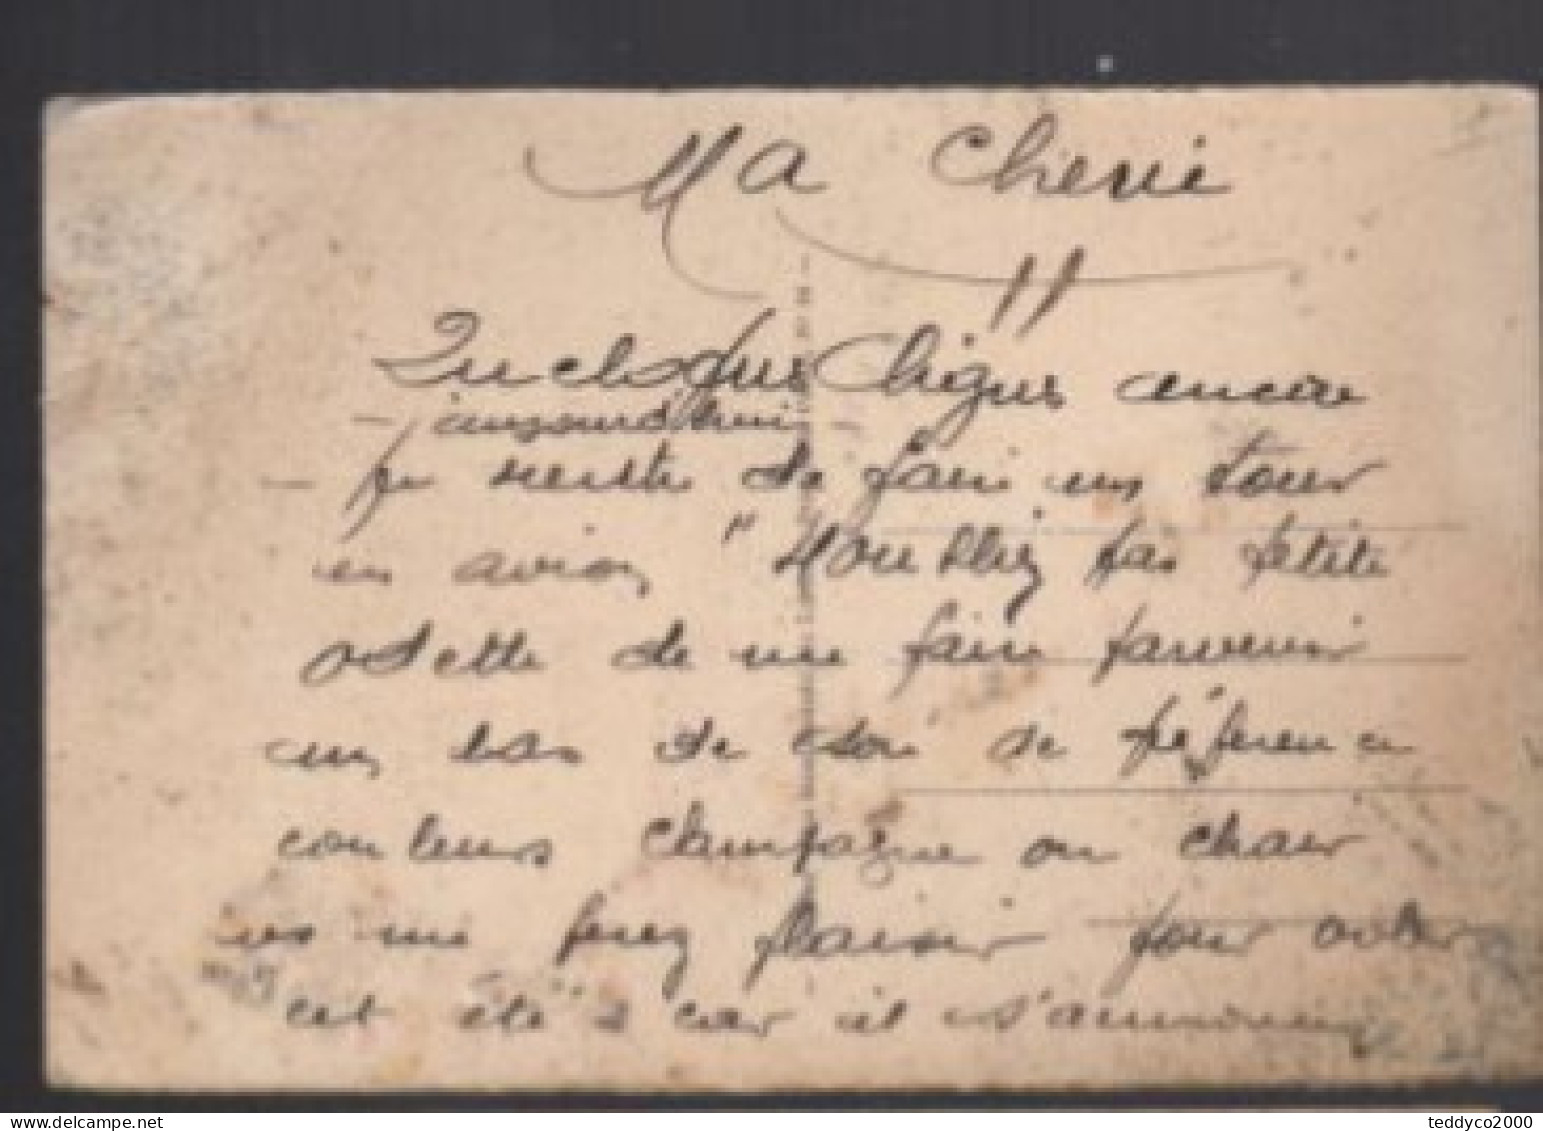 Ma Cherie
Quelques lignes encore
aujourd'hui
Je reste de faire un tour
en avion "N'oubliez pas petite
Odette de me faire parvenir
un bas de soie de préférence
couleurs champagne ou chair
me ferez plaisir pour
cet été" car il s'annonce
teddyco2000